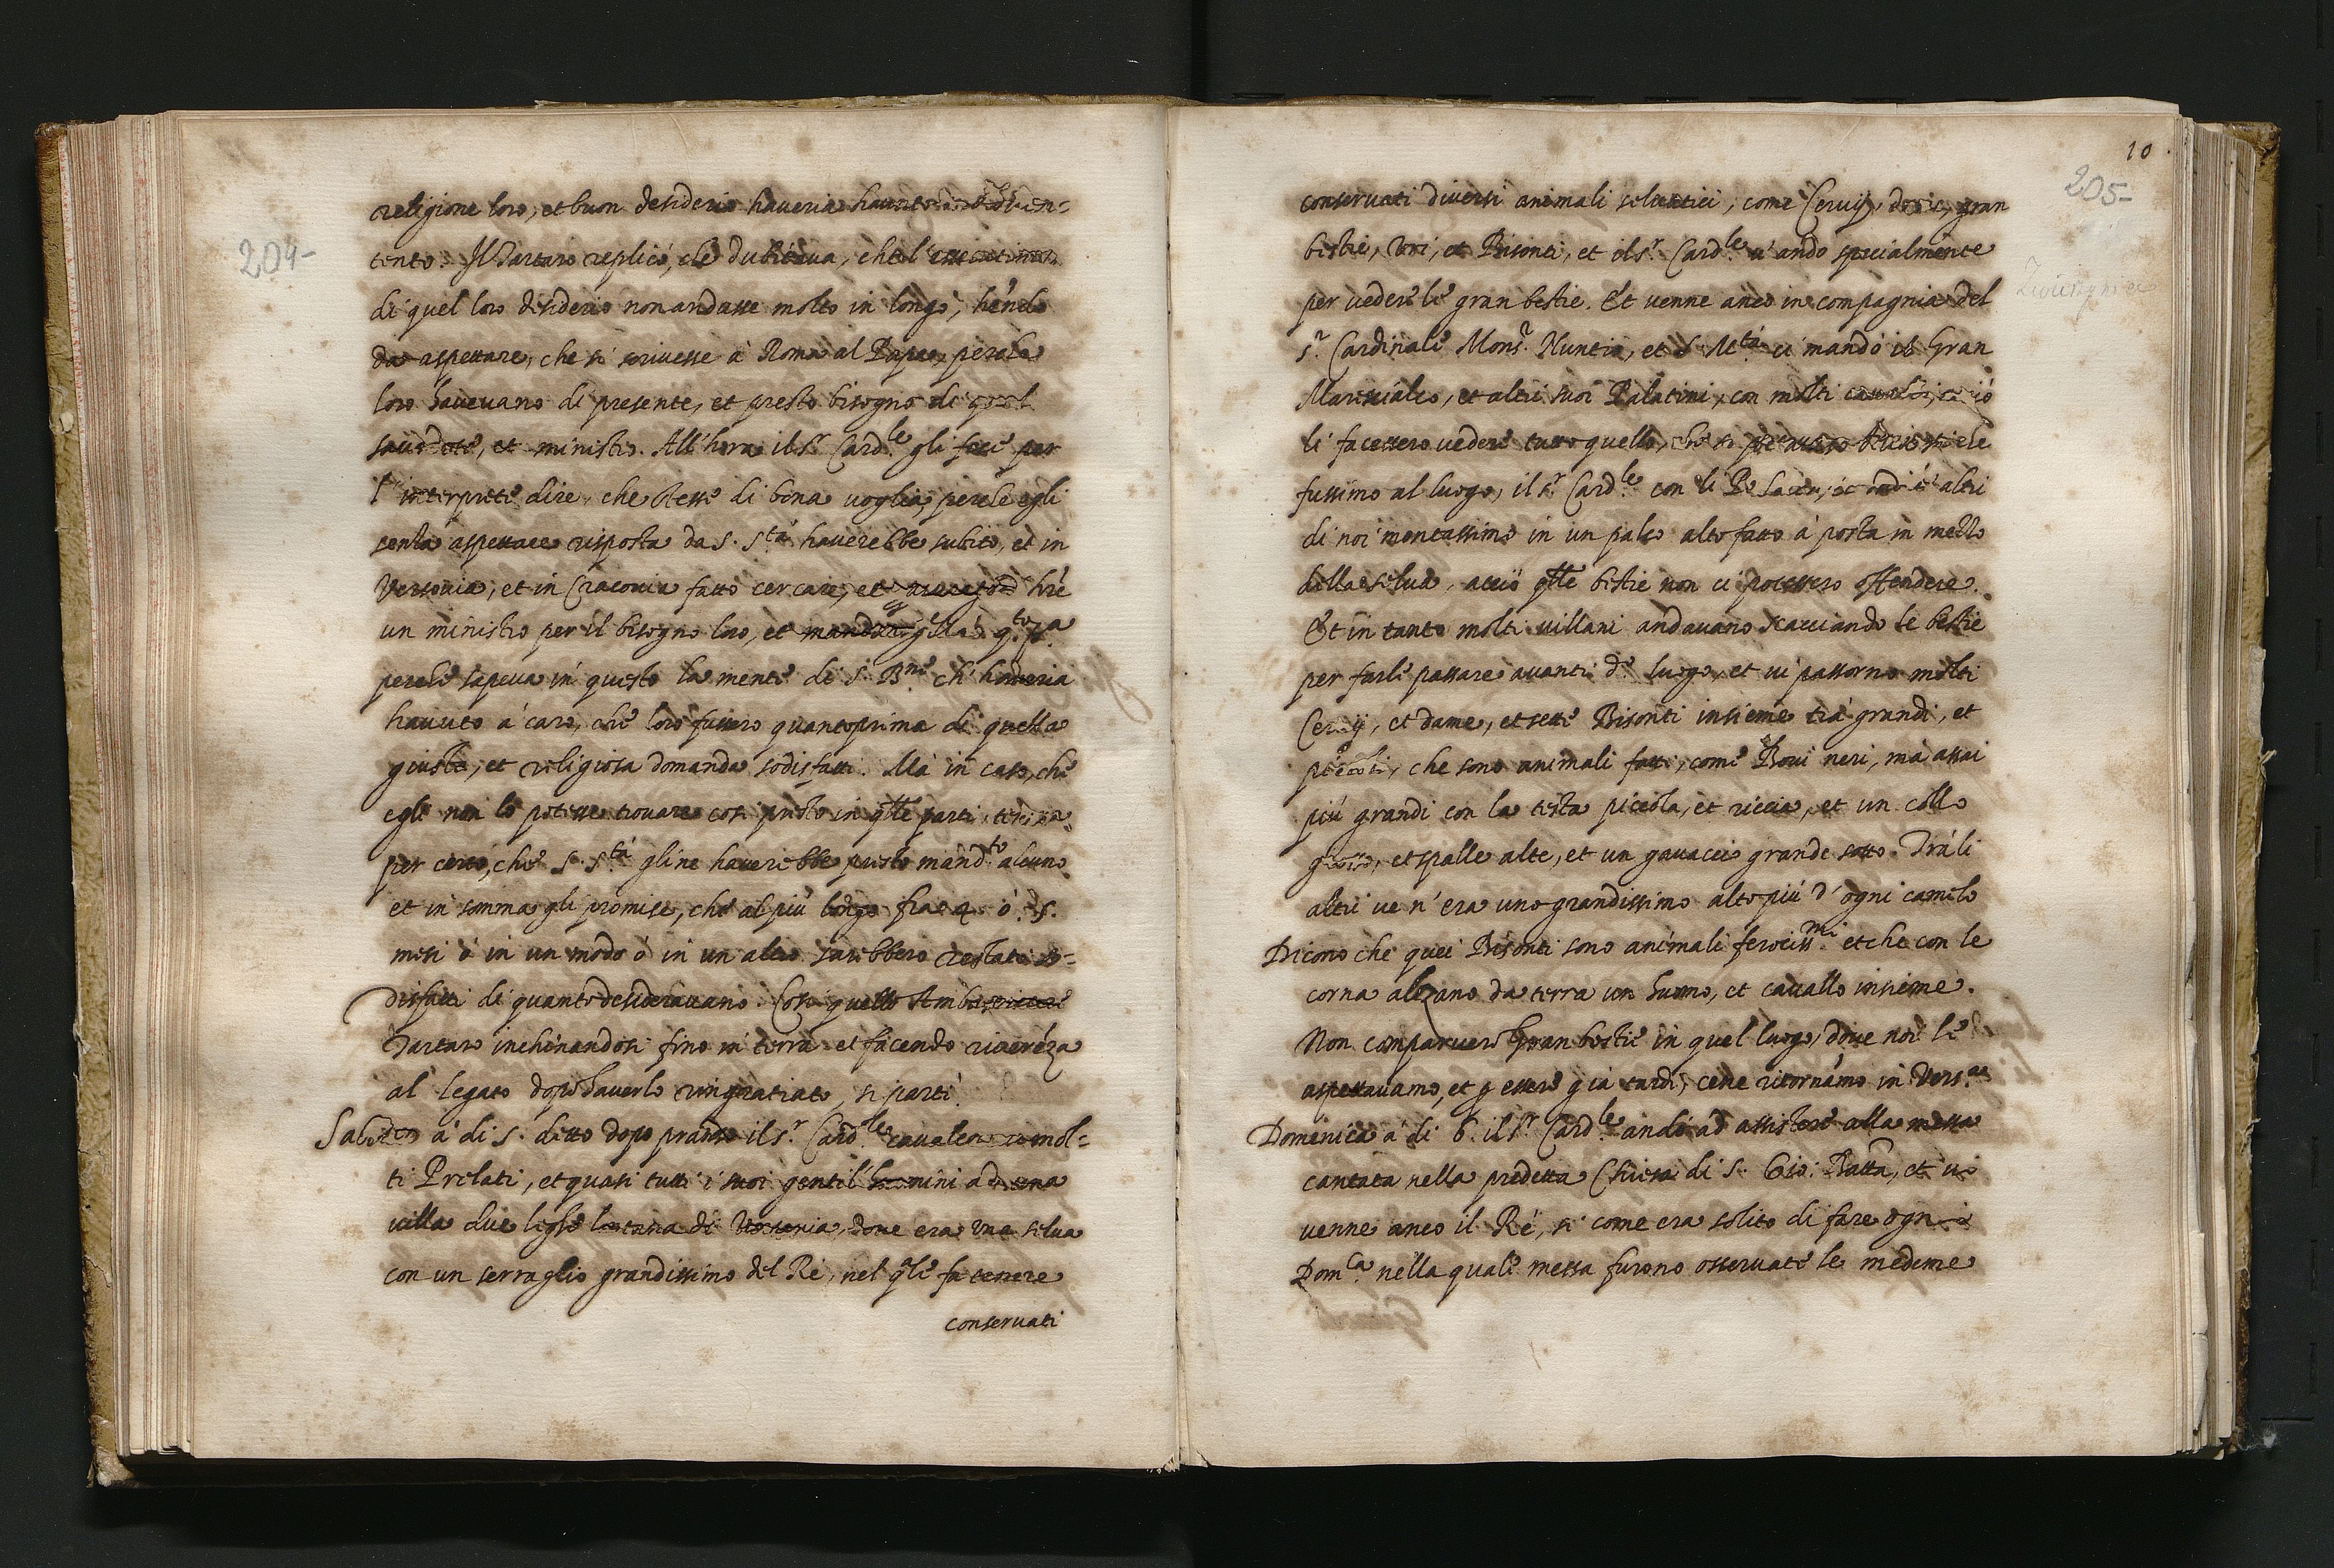 204-
religione loro, et buon desiderio haveria havuto
tento. Il Tartaro replicò, che dubitava, che l'
di quel loro desiderio non andasse molto in longo, havendo
da aspettare, che si scrivesse à Roma al Papa, perche
loro havevano di presente, et presto bisogno di
sacerdote, et ministro. All'hora il sr. Cardle. gli fece per
l'interprete dire, che stesse di bona voglia, perche egli
senza aspettare risposta da S. Stà. haverebbe subito, et in
Versovia, et in Cracovia fatto cercare, et
un ministro per il bisogno loro, et
perche sapeva in questo la mente di S. Bne. ch' haveria
havuto à caro, che loro fussero quanto prima di quella
giusta, et religiosa domanda sodisfatti. Mà in caso, che
egli non lo potesse trovare così presto in qlle parti,
per certo, che S. Stà. gline haverebbe presto mandto. alcuno
et in somma gli promise, che al più longo fra 4. ò. 5.
mesi ò in un modo ò in un altro sarebbero restati so-
disfatti di quanto desideravano. Così quello Ambasciatore
Tartaro inchinandosi fino in terra et facendo riverẽza
al legato dopo haverlo ringratiato, si partì.
Sabato à di 5. detto dopo pranso il sr. Cardle. cavalcò co mol-
ti Prelati, et quasi tutti i suoi gentil'homini ad una
villa due leghe lontana di Versovia, dove era una selva
con un serraglio grandissimo del Rè, nel qle fa tenere
conservati
10
205-
conservati diversi animali selvatici, come Cervij, gran
bestie, Uri, et Bisonti, et il sr. Cardle. v'andò specialmente
per vedere le gran bestie. Et venne anco in compagnia del
sr. Cardinale Monsr. Nuntio, et S. Mtà. ci mandò il Gran
Marescialco, et altri suoi Palatini, con molti
li facessero vedere tutto quello, che si
fussimo al luogo, il sr. Cardle. con li altri
di noi montassimo in un palco alto fatto à posta in mezzo
della selva, acciò qlle bestie non ci potessero offendere.
Et in tanto molti villani andavano scacciando le bestie
per farle passare avanti do. luogo, et vi passorno molti
Cervij, et dame, et sette Bisonti insieme trà grandi, et
piccoli, che sono animali fatti, come Bovi neri, mà assai
più grandi con la testa piccola, et riccia, et un collo
grosso, et spalle alte, et un gavaccio grande sotto. Trà li
altri ve n'era uno grandissimo alto più d'ogni camelo
Dicono che quei Bisonti sono animali ferocissmi. et che con le
corna alzano da terra un huomo, et cavallo insieme.
Non comparvero gran bestie in quel luogo, dove noi le
aspettavamo, et p essere già tardi, cene ritornamo in Versa.
Domenica à di 6. il sr. Cardle. andò ad assistere alla messa
cantata nella predetta Chiesa di S. Gio: Batta, et vi
venne anco il Rè, si come era solito di fare ogni
Domca. nella quale messa furono osservate le medeme